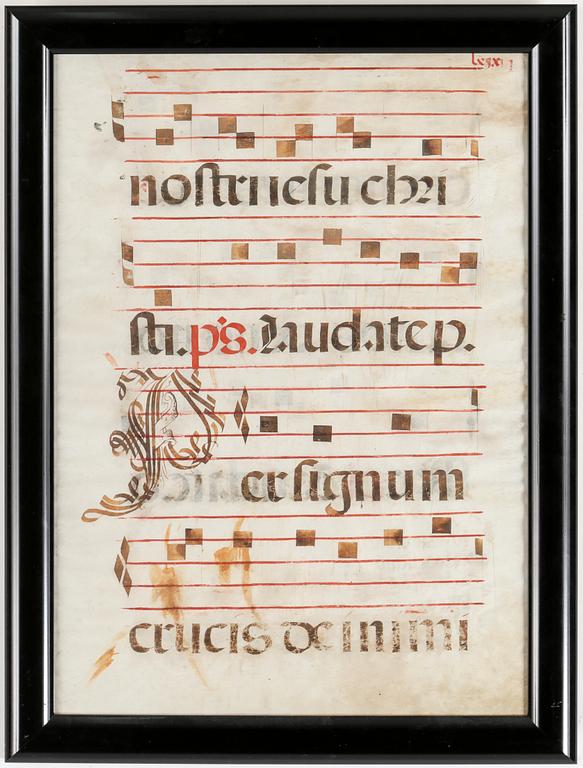 nostri iesu chri
sti. ps. Laudate p.
Per signum
crucis de inimi